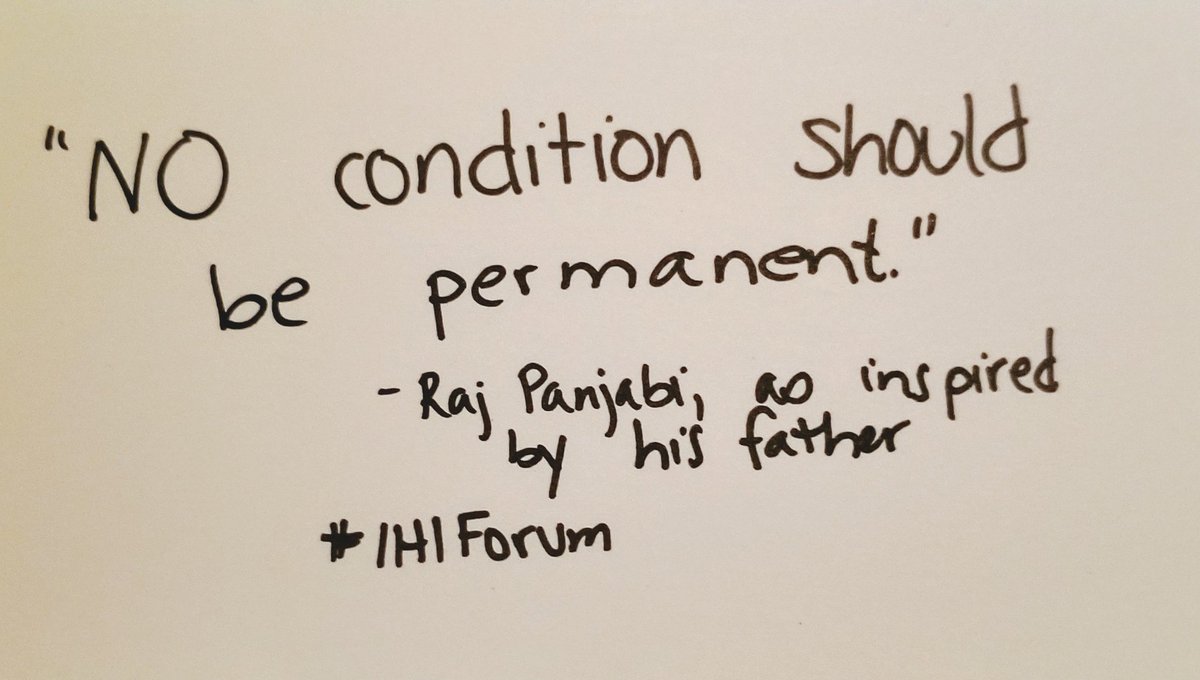 "NO condition should
be permanent."
- Raj Panjabi, as inspired
by his father
#IHIForum